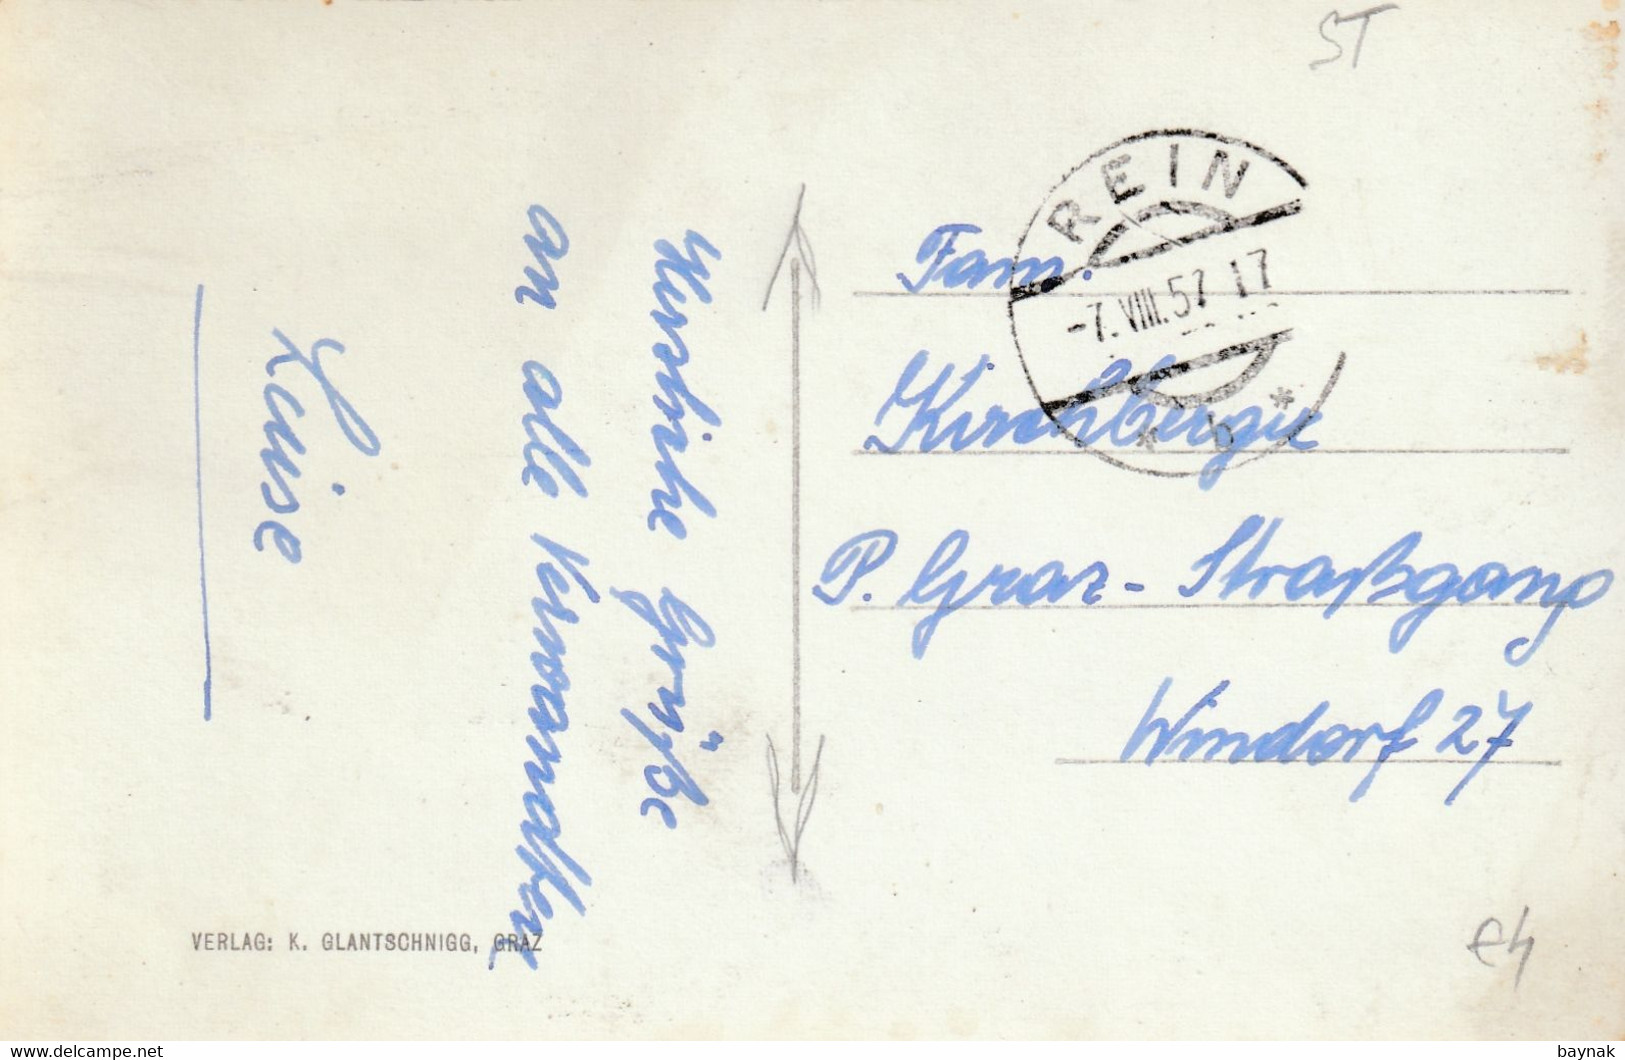 ST
REIN
-7.VIII.57 17
* b *
Fam.
Kirchberger
P. Graz - Straßgang
Windorf 27
Herzliche Grüße
an alle Verwandten
Luise
VERLAG: K. GLANTSCHNIGG, GRAZ
e4
www.delcampe.net
baynak